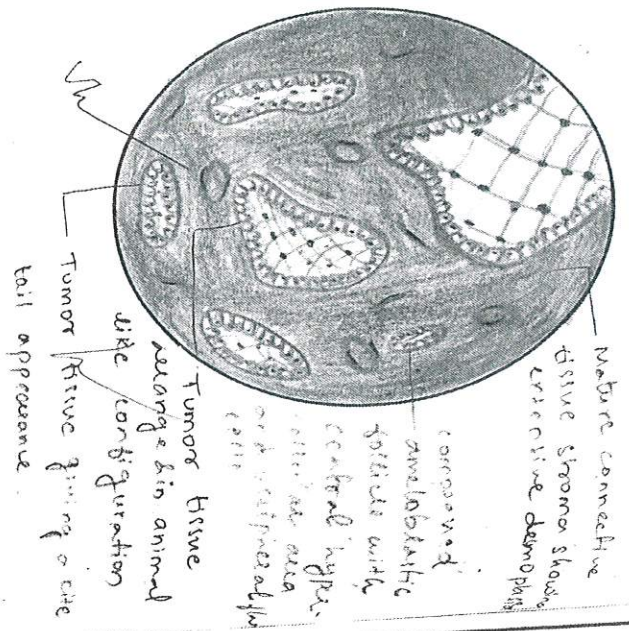 Mature connective
tissue stroma showing
extensive demoplasia
compound
ameloblastic
follicle with
central hyper
cellular area
and
cells
Tumor tissue
arrange in animal
like configuration
Tumor tissue giving a kite
tail appearance